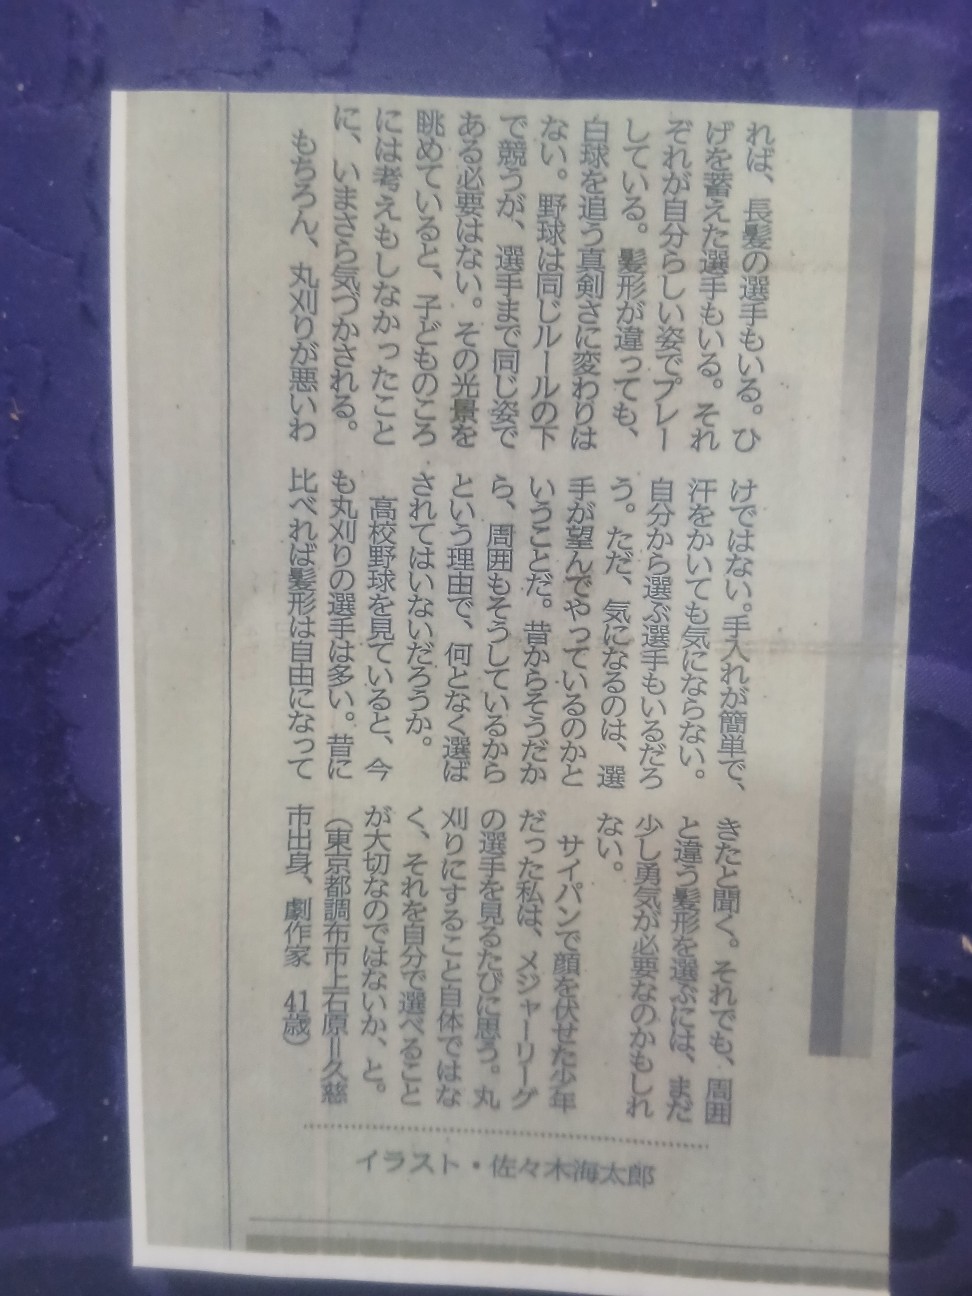 れば、長髪の選手もいる。ひ
げを蓄えた選手もいる。それ
ぞれが自分らしい姿でプレー
している。髪形が違っても、
白球を追う真剣さに変わりは
ない。野球は同じルールの下
で競うが、選手まで同じ姿で
ある必要はない。その光景を
眺めていると、子どものころ
には考えもしなかったこと
に、いまさら気づかされる。
もちろん、丸刈りが悪いわ
けではない。手入れが簡単で、
汗をかいても気にならない。
自分から選ぶ選手もいるだろ
う。ただ、気になるのは、選
手が望んでやっているのかと
いうことだ。昔からそうだか
ら、周囲もそうしているから
という理由で、何となく選ば
されてはいないだろうか。
高校野球を見ていると、今
も丸刈りの選手は多い。昔に
比べれば髪形は自由になって
きたと聞く。それでも、周囲
と違う髪形を選ぶには、まだ
少し勇気が必要なのかもしれ
ない。
サイパンで顔を伏せた少年
だった私は、メジャーリーグ
の選手を見るたびに思う。丸
刈りにすること自体ではな
く、それを自分で選べること
が大切なのではないか、と。
（東京都調布市上石原＝久慈
市出身、劇作家　41歳）
イラスト・佐々木海太郎